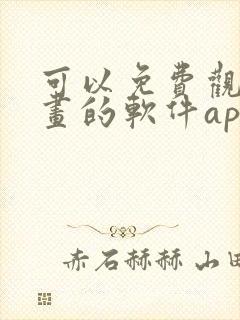 可以免費觀
畫的軟件ap
赤石赫赫 山田